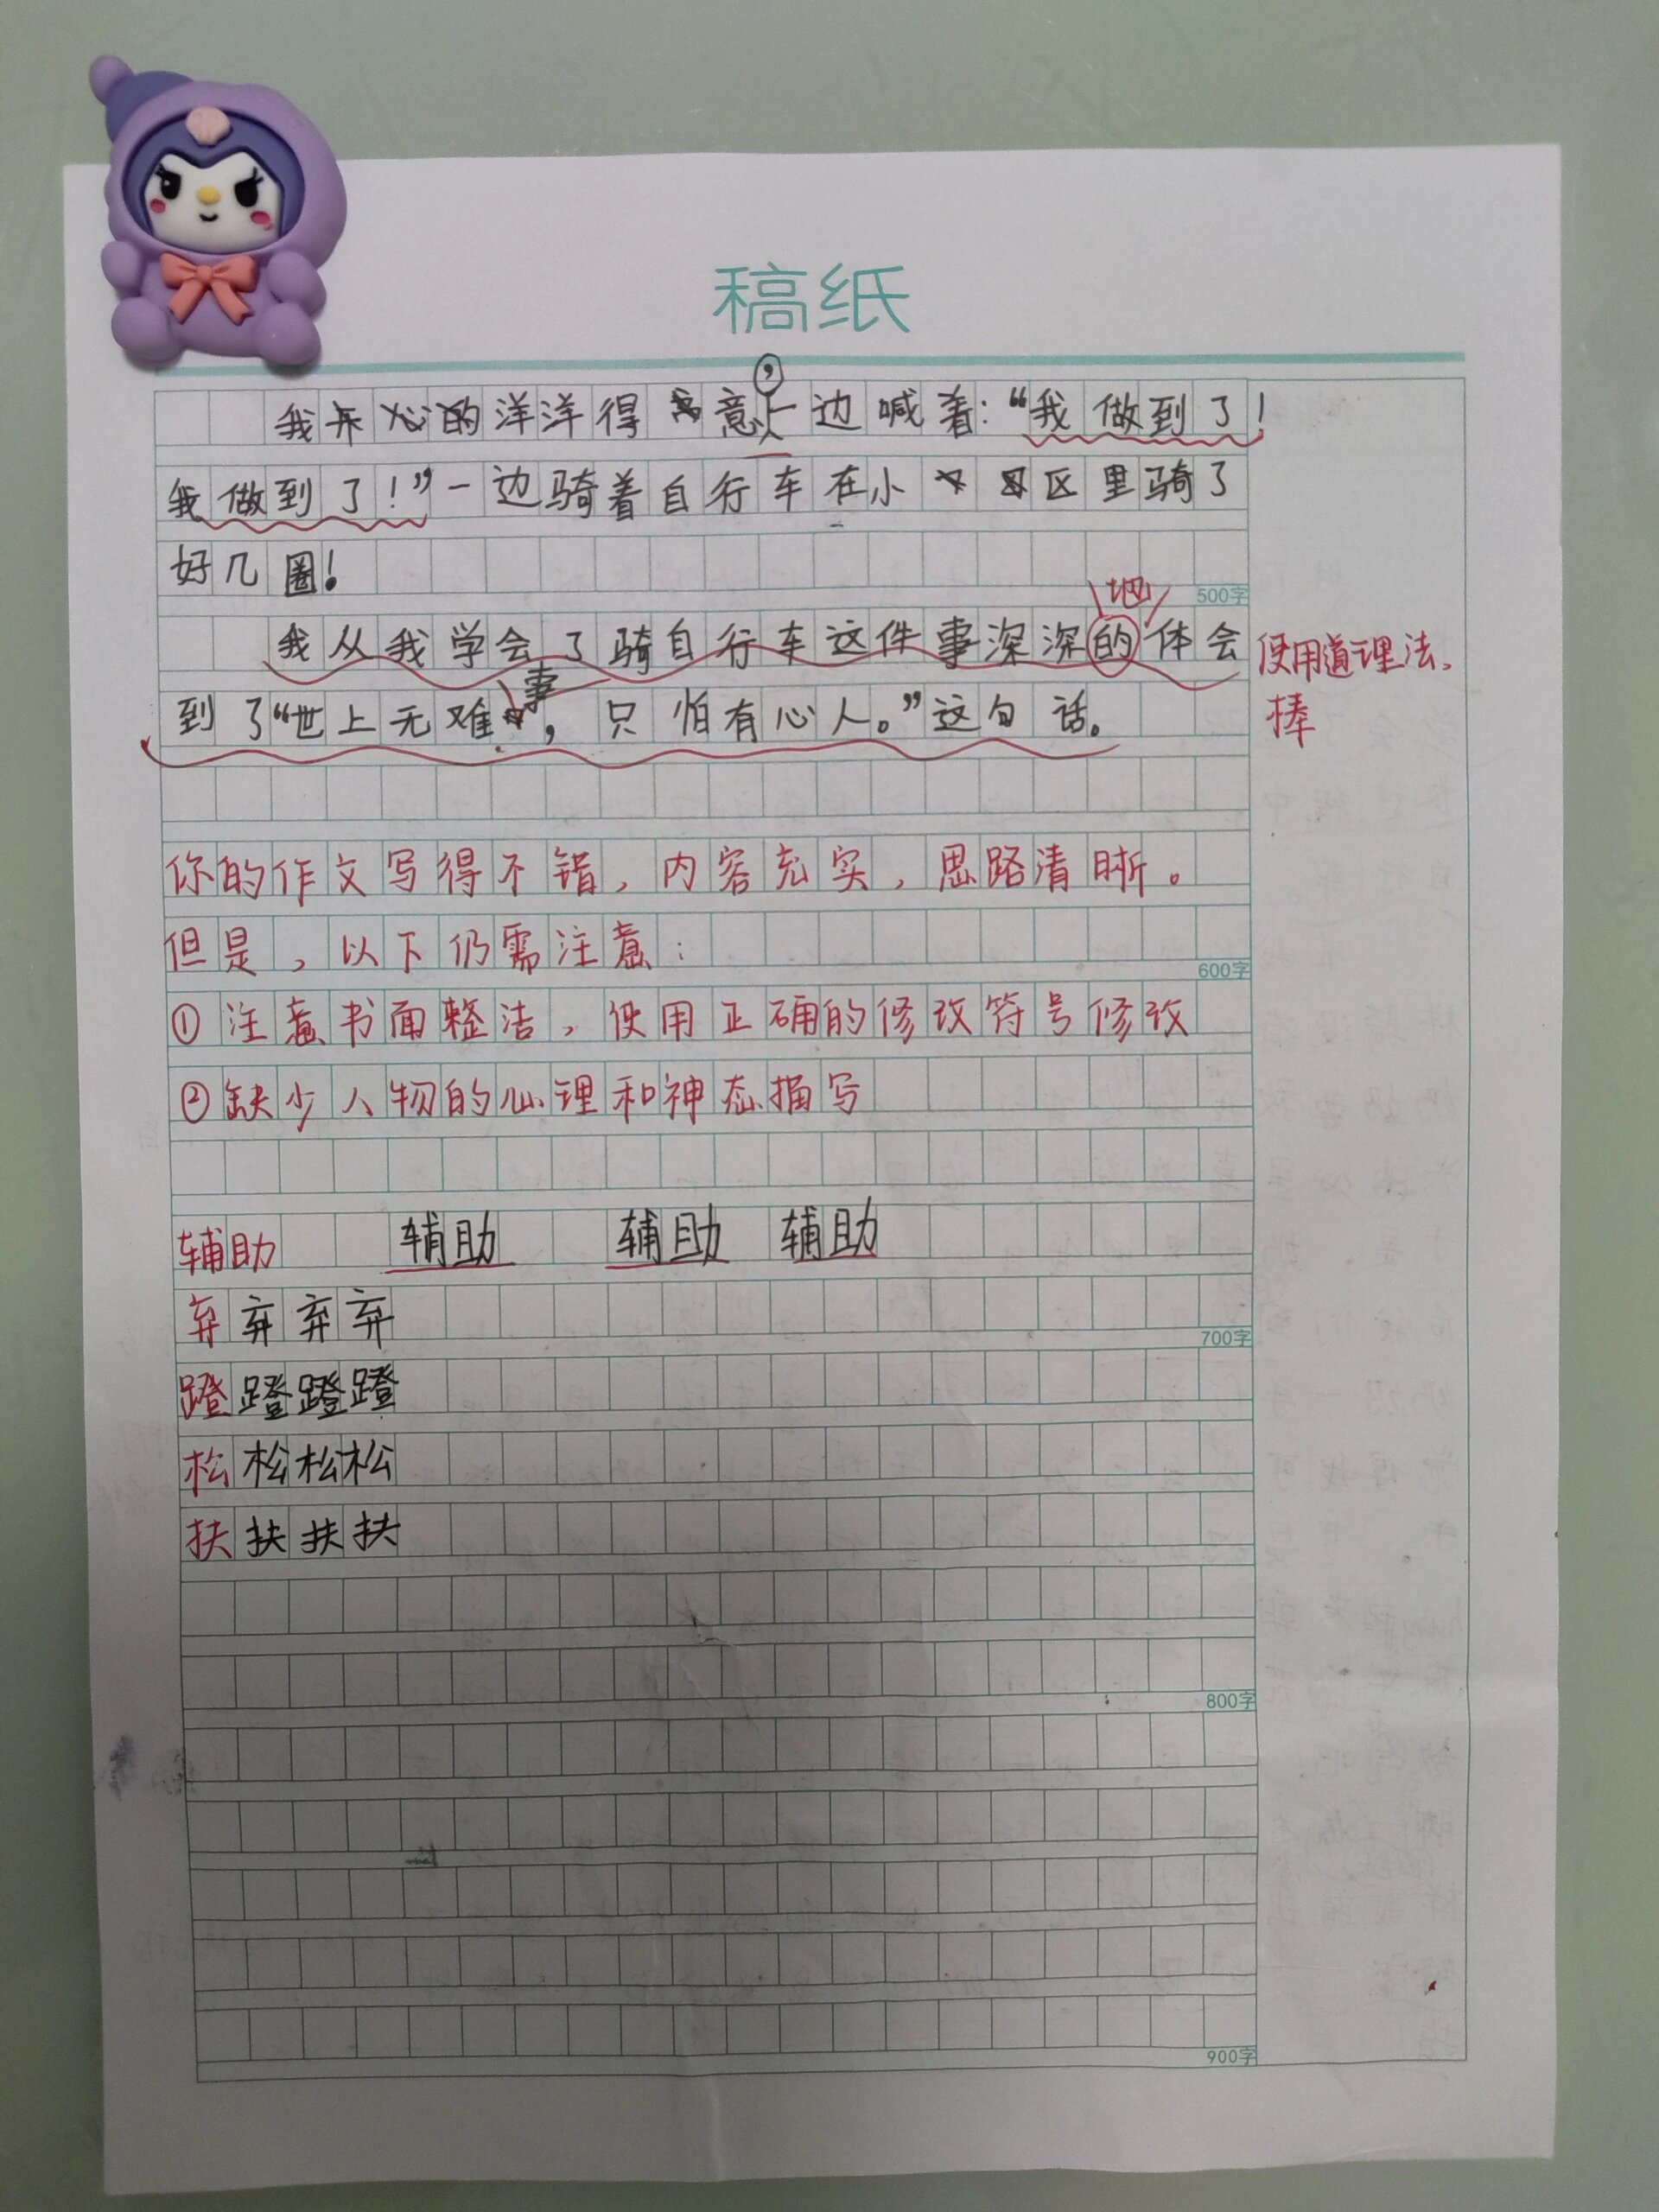 稿纸
我开心的洋洋得意,一边喊着:“我做到了!
我做到了!”一边骑着自行车在小区里骑了
好几圈!
500字
地
我从我学会了骑自行车这件事深深的体会
使用道理法,
棒
事
到了“世上无难,只怕有心人。”这句话。
你的作文写得不错,内容充实,思路清晰。
但是,以下仍需注意:
600字
①注意书面整洁,使用正确的修改符号修改
②缺少人物的心理和神态描写
辅助 辅助 辅助 辅助
弃弃弃弃
700字
蹬蹬蹬蹬
松松松松
扶扶扶扶
800字
900字